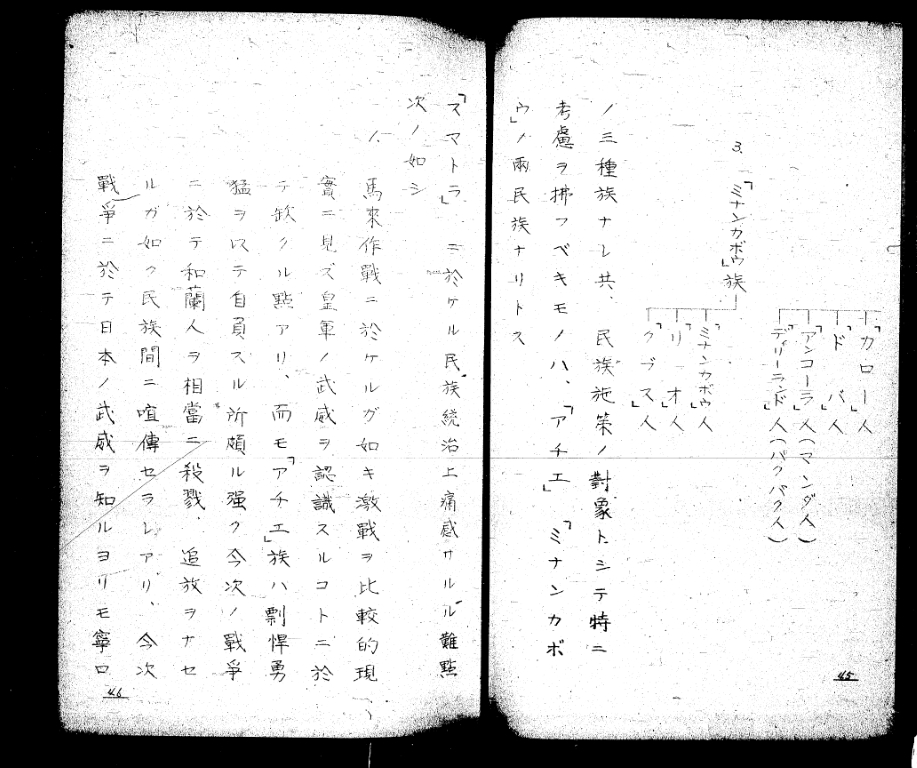 「カロー」人
「ドバ」人
「アンコーラ」人(マンダ人)
「ディリーランド」人(パクパク人)
3.「ミナンカボウ」族
「ミナンカボウ」人
「リオ」人
「クブス」人
ノ三種族ナレ共、民族施策ノ對象トシテ特ニ
考慮ヲ拂フベキモノハ、「アチエ」「ミナンカボ
ウ」ノ兩民族ナリトス
45
「スマトラ」ニ於ケル民族統治上痛感サルル難點
次ノ如シ
1.馬來作戰ニ於ケルガ如キ激戰ヲ比較的現
實ニ見ズ皇軍ノ武威ヲ認識スルコトニ於
テ欽クル點アリ、而モ「アチエ」族ハ剽悍勇
猛ヲ以テ自負スル所頗ル强ク今次ノ戰爭
ニ於テ和蘭人ヲ相當ニ殺戮、追放ヲナセ
ルガ如ク民族間ニ喧傳セラレアリ、今次
戰爭ニ於テ日本ノ武威ヲ知ルヨリモ寧ロ
46